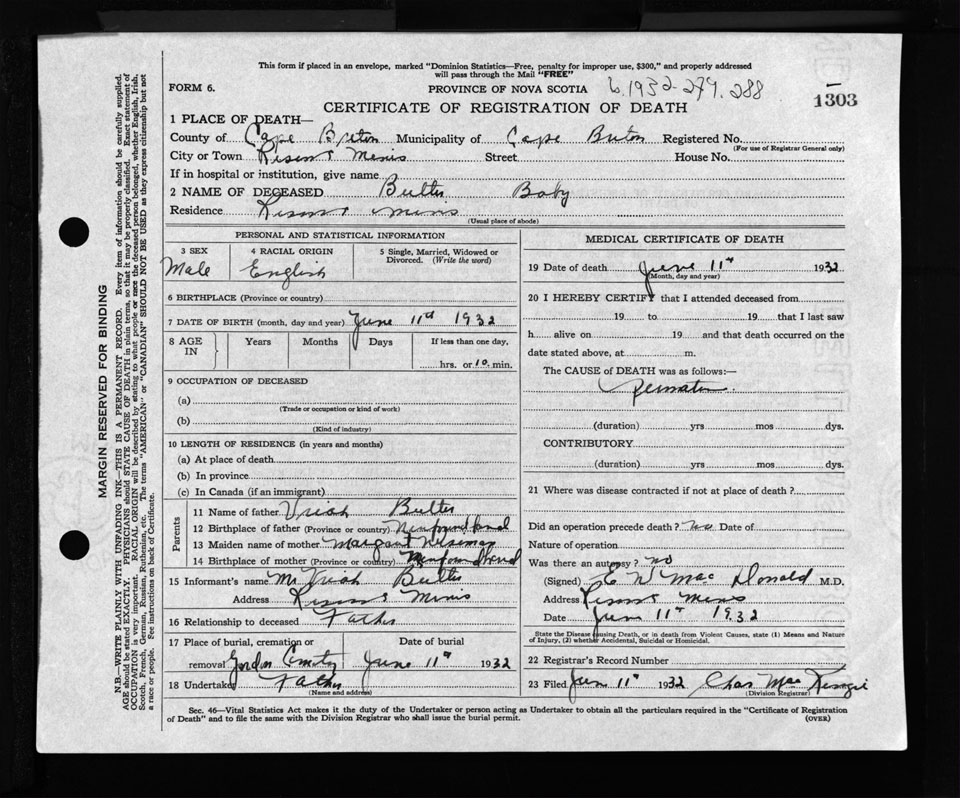 This form if placed in an envelope, marked "Dominion Statistics—Free, penalty for improper use, $300," and properly addressed
will pass through the Mail "FREE"
FORM 6. PROVINCE OF NOVA SCOTIA 1932-279.288
1303
CERTIFICATE OF REGISTRATION OF DEATH
1 PLACE OF DEATH—
County of Cape Breton Municipality of Cape Breton Registered No.
(For use of Registrar General only)
City or Town Street House No.
If in hospital or institution, give name
2 NAME OF DECEASED Butler Baby
Residence
(Usual place of abode)
PERSONAL AND STATISTICAL INFORMATION
3 SEX 4 RACIAL ORIGIN 5 Single, Married, Widowed or
Divorced. (Write the word)
Male English
6 BIRTHPLACE (Province or country)
7 DATE OF BIRTH (month, day and year) June 11th 1932
8 AGE IN Years Months Days If less than one day,
hrs. or 10 min.
9 OCCUPATION OF DECEASED
(a)
(Trade or occupation or kind of work)
(b)
(Kind of industry)
10 LENGTH OF RESIDENCE (in years and months)
(a) At place of death
(b) In province
(c) In Canada (if an immigrant)
Parents
11 Name of father Uriah Butler
12 Birthplace of father (Province or country) Newfoundland
13 Maiden name of mother Margaret Wiseman
14 Birthplace of mother (Province or country) Newfoundland
15 Informant's name Mr Uriah Butler
Address
16 Relationship to deceased Father
17 Place of burial, cremation or Date of burial
removal Gordon Cemetery June 11th 1932
18 Undertaker Father
(Name and address)
MEDICAL CERTIFICATE OF DEATH
19 Date of death June 11th 1932
(Month, day and year)
20 I HEREBY CERTIFY that I attended deceased from
19 to 19 that I last saw
h alive on 19 and that death occurred on the
date stated above, at m.
The CAUSE of DEATH was as follows:—
(duration) yrs mos dys.
CONTRIBUTORY
(duration) yrs mos dys.
21 Where was disease contracted if not at place of death?
Did an operation precede death? no Date of
Nature of operation
Was there an autopsy? no
(Signed) E W MacDonald M.D.
Address
Date June 11th 1932
State the Disease causing Death, or in death from Violent Causes, state (1) Means and Nature
of Injury, (2) whether Accidental, Suicidal or Homicidal.
22 Registrar's Record Number
23 Filed June 11th 1932 Chas MacKenzie
(Division Registrar)
Sec. 46—Vital Statistics Act makes it the duty of the Undertaker or person acting as Undertaker to obtain all the particulars required in the "Certificate of Registration
of Death" and to file the same with the Division Registrar who shall issue the burial permit. (OVER)
MARGIN RESERVED FOR BINDING
N.B.—WRITE PLAINLY WITH UNFADING INK—THIS IS A PERMANENT RECORD. Every item of information should be carefully supplied.
AGE should be stated EXACTLY. PHYSICIANS should STATE CAUSE OF DEATH in plain terms, so that it may be properly classified. Exact statement of
OCCUPATION is very important. RACIAL ORIGIN will be described by stating to what people or race the deceased person belonged, whether English, Irish,
Scotch, French, German, Russian, Ruthenian, etc. The terms "AMERICAN" or "CANADIAN" SHOULD NOT BE USED as they express citizenship but not
a race or people. See instructions on back of Certificate.